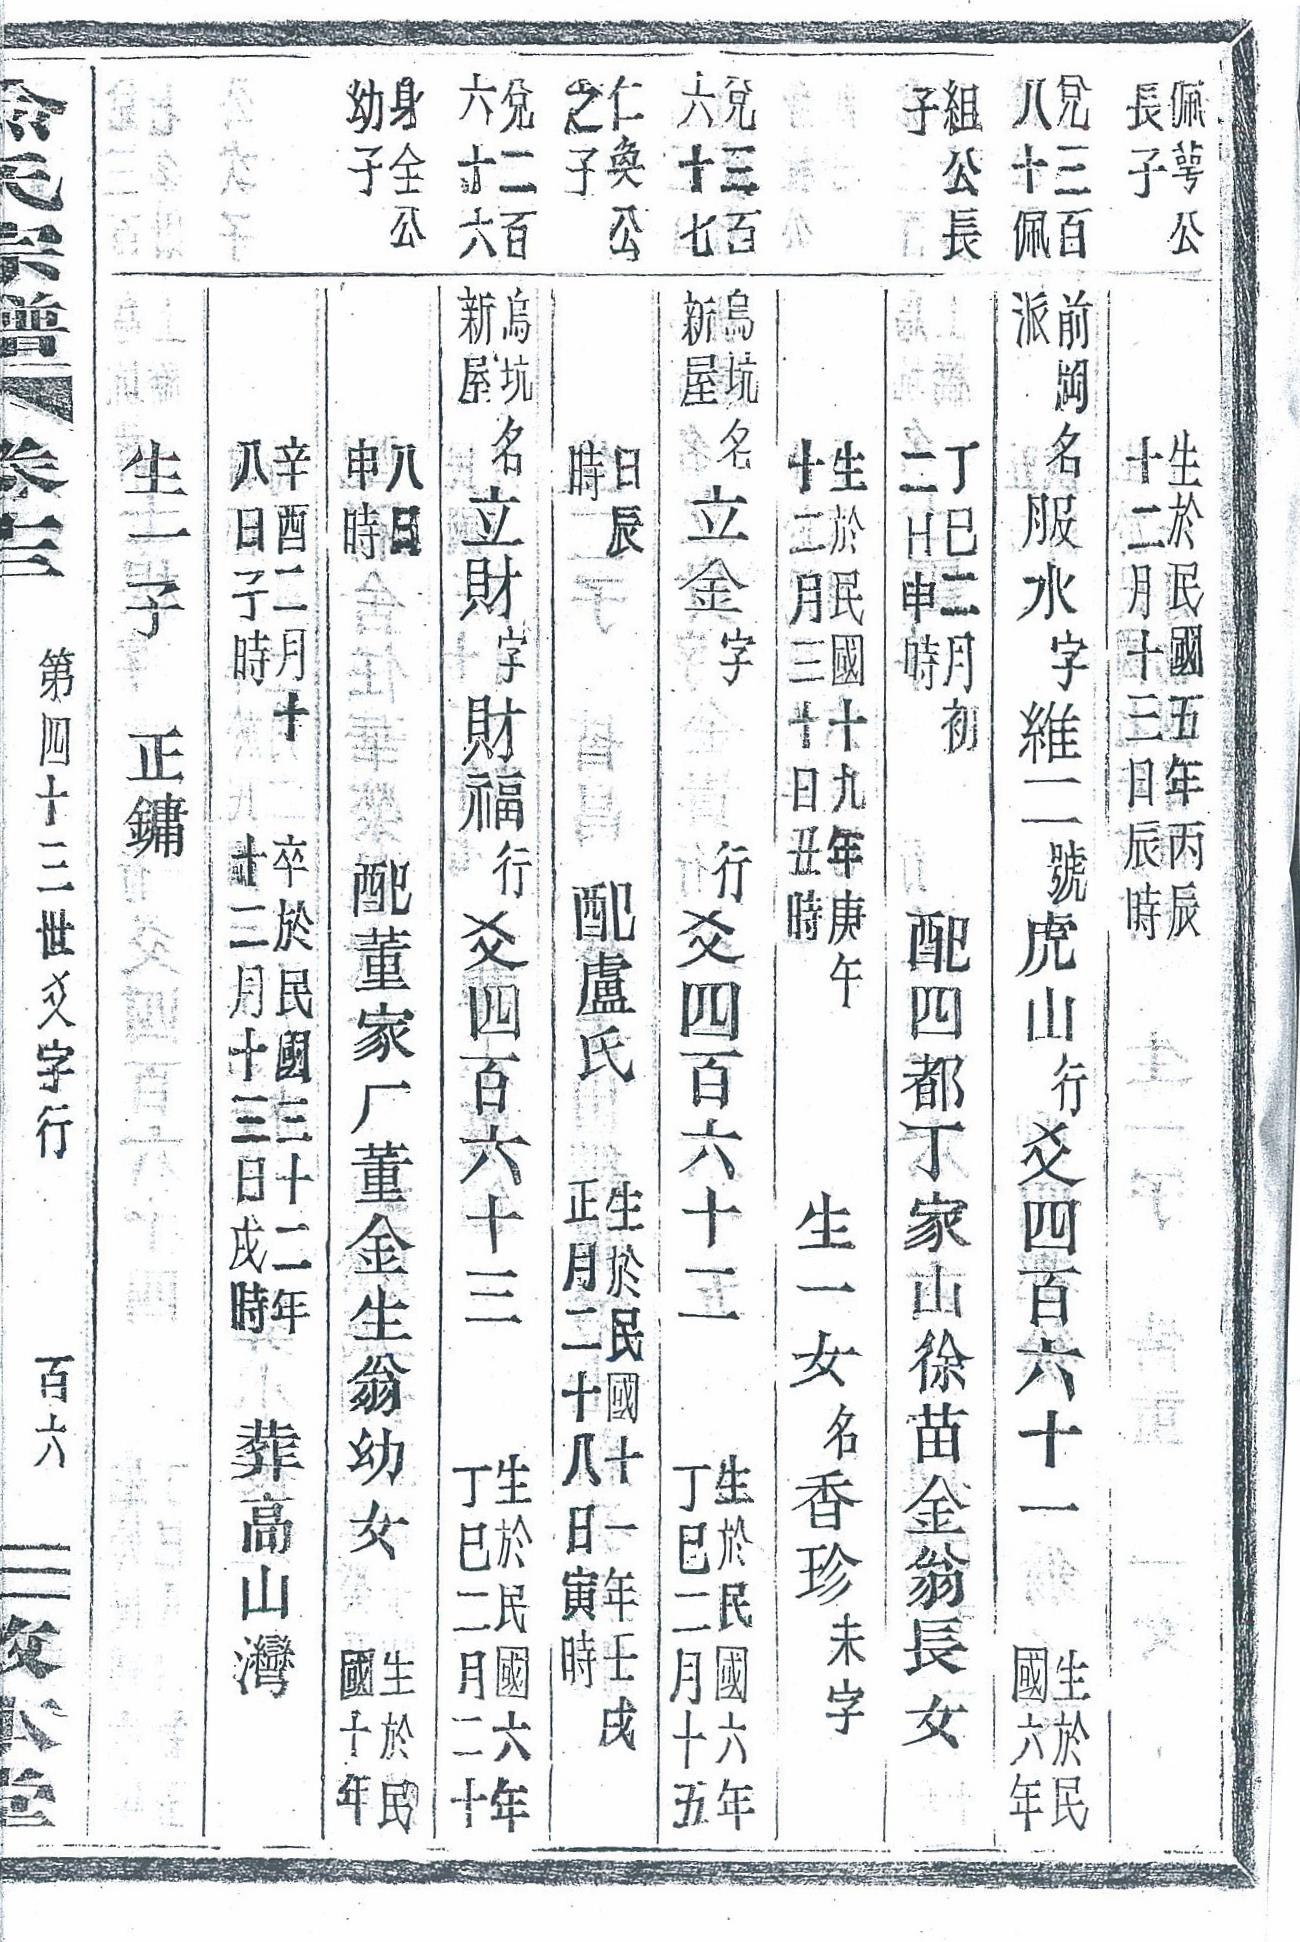 佩萼公
長子
生於民國五年丙辰
十二月十三日辰時
兌三百
八十佩
前岡
派
名服水字維二號虎山行爻四百六十一
生於民
國六年
組公長
子
丁巳二月初
二日申時
配四都丁家山徐苗金翁長女
生於民國十九年庚午
十二月三十日丑時
生一女名香珍未字
兌三百
六十七
烏坑
新屋
名立金字 行爻四百六十二
生於民國六年
丁巳二月十五
仁奐公
之子
日辰
時
配盧氏
生於民國十一年壬戌
正月二十八日寅時
兌二百
六十六
烏坑
新屋
名立財字財福行爻四百六十三
生於民國六年
丁巳二月二十
身全公
幼子
八日
申時
配董家厂董金生翁幼女
生於民
國十年
辛酉二月十
八日子時
卒於民國三十二年
十二月十三日戌時
葬高山灣
生一子 正鏞
氏宗譜
第四十三世爻字行 百六